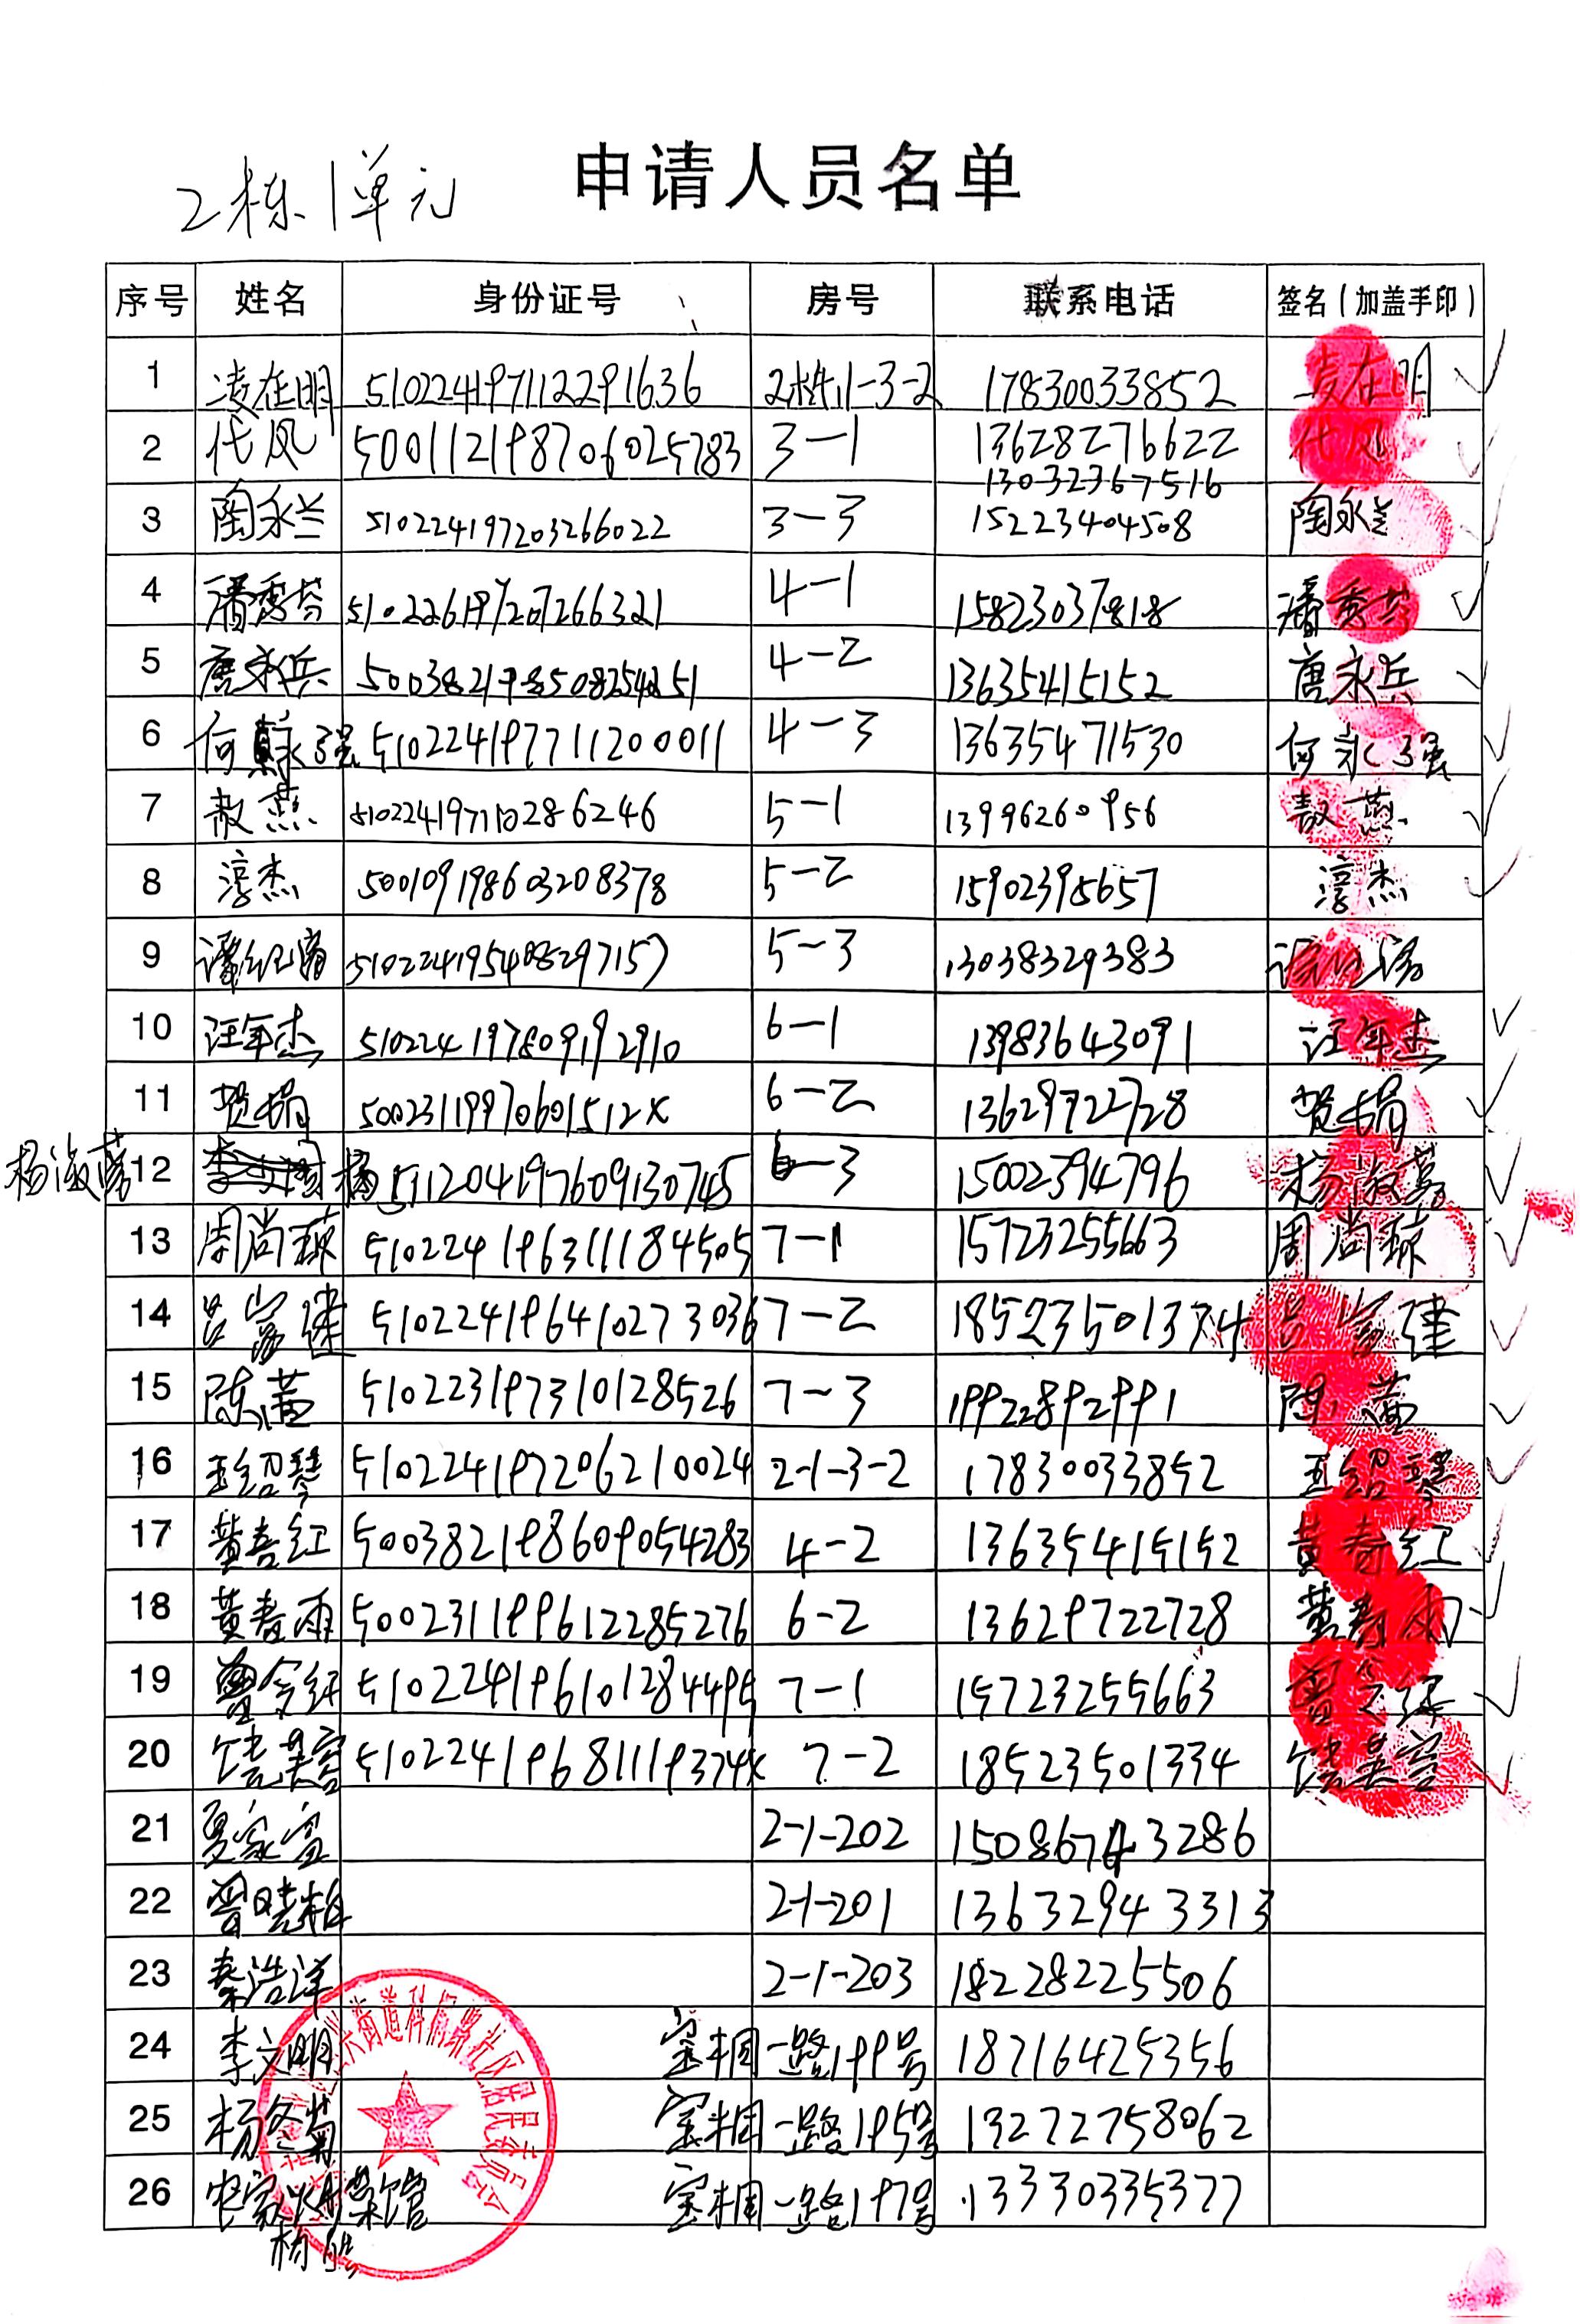 2栋1单元 申请人员名单
序号 姓名 身份证号 房号 联系电话 签名（加盖手印）
1 凌在明 510224197112291636 2栋1-3-2 17830033852 凌在明
2 代凤 500112198706025783 3-1 13628276622 代凤
13032367516
3 陶永兰 510224197203266022 3-3 15223404508 陶永兰
4 潘秀芬 4-1 15823037818 潘秀芬
5 唐永兵 4-2 13635415152 唐永兵
6 何永强 510224197711200011 4-3 13635471530 何永强
7 敖燕 510224197110286246 5-1 13996260956 敖燕
8 淳杰 500109198603208378 5-2 15902395657 淳杰
9 510224195408297157 5-3 13038329383
10 汪年杰 510224197809192910 6-1 13983643091 汪年杰
11 贺娟 50023119970601512X 6-2 13629722728 贺娟
12 511204197609130745 6-3 15002394796
13 周尚琼 510224196311184505 7-1 15723255663 周尚琼
14 吕富健 510224196410273036 7-2 吕富健
15 陈茜 510223197310128526 7-3 19922892991 陈茜
16 王绍琴 510224197206210024 2-1-3-2 17830033852 王绍琴
17 黄春红 500382198609054283 4-2 13635415152 黄春红
18 黄春雨 500231199612285276 6-2 13629722728 黄春雨
19 510224196101284495 7-1 15723255663
20 饶英容 51022419681119374X 7-2 18523501334 饶英容
21 夏家富 2-1-202 15086743286
22 曾晓梅 2-1-201 13632943313
23 秦浩洋 2-1-203 18228225506
24 李文明 宝桐一路199号 18716425356
25 杨冬菊 宝桐一路195号 13272758062
26 宝桐一路197号 13330335377